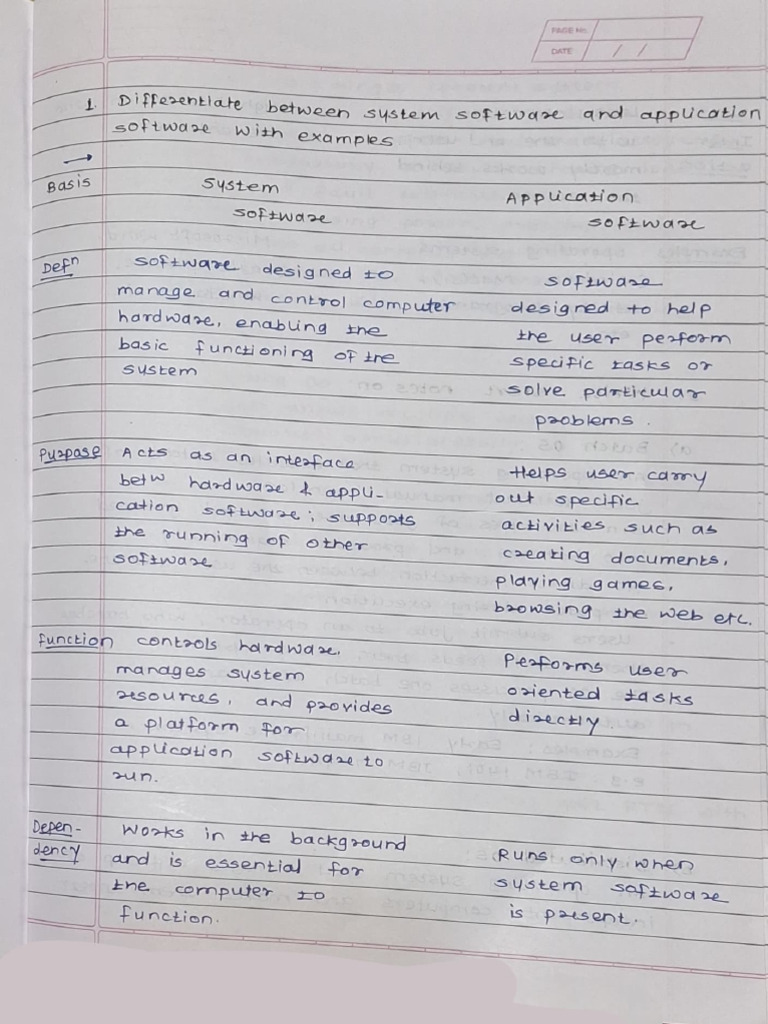 PAGE No.
DATE / /
1. Differentiate between system software and application
software with examples
→
Basis System Application
software software
Defn software designed to software
manage and control computer designed to help
hardware, enabling the the user perform
basic functioning of the specific tasks or
system solve particular
problems.
Purpose Acts as an interface Helps user carry
betw hardware & appli- out specific
cation software; supports activities such as
the running of other creating documents,
software playing games,
browsing the web etc.
function controls hardware, Performs user
manages system oriented tasks
resources, and provides directly.
a platform for
application software to
run.
Depen- Works in the background Runs only when
dency and is essential for system software
the computer to is present.
function.